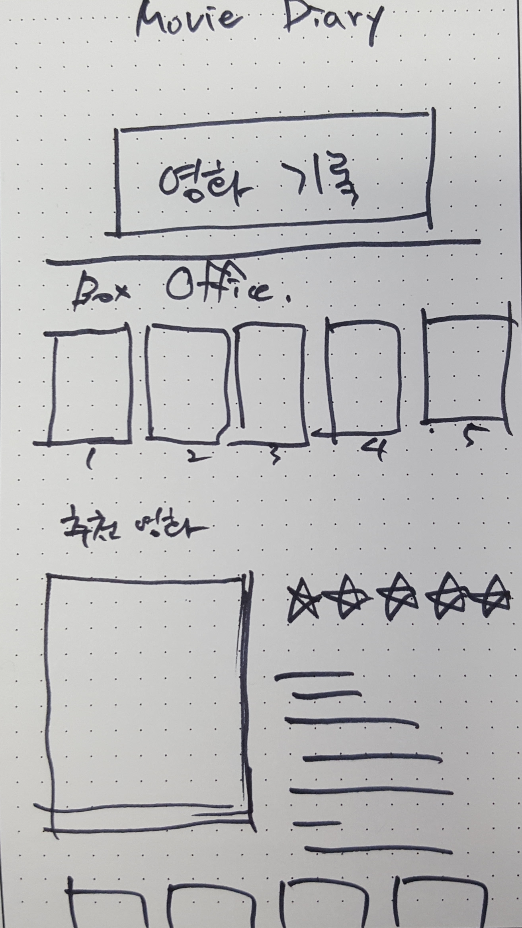 Movie Diary
영화 기록
Box Office.
1 2 3 4 5
추천 영화